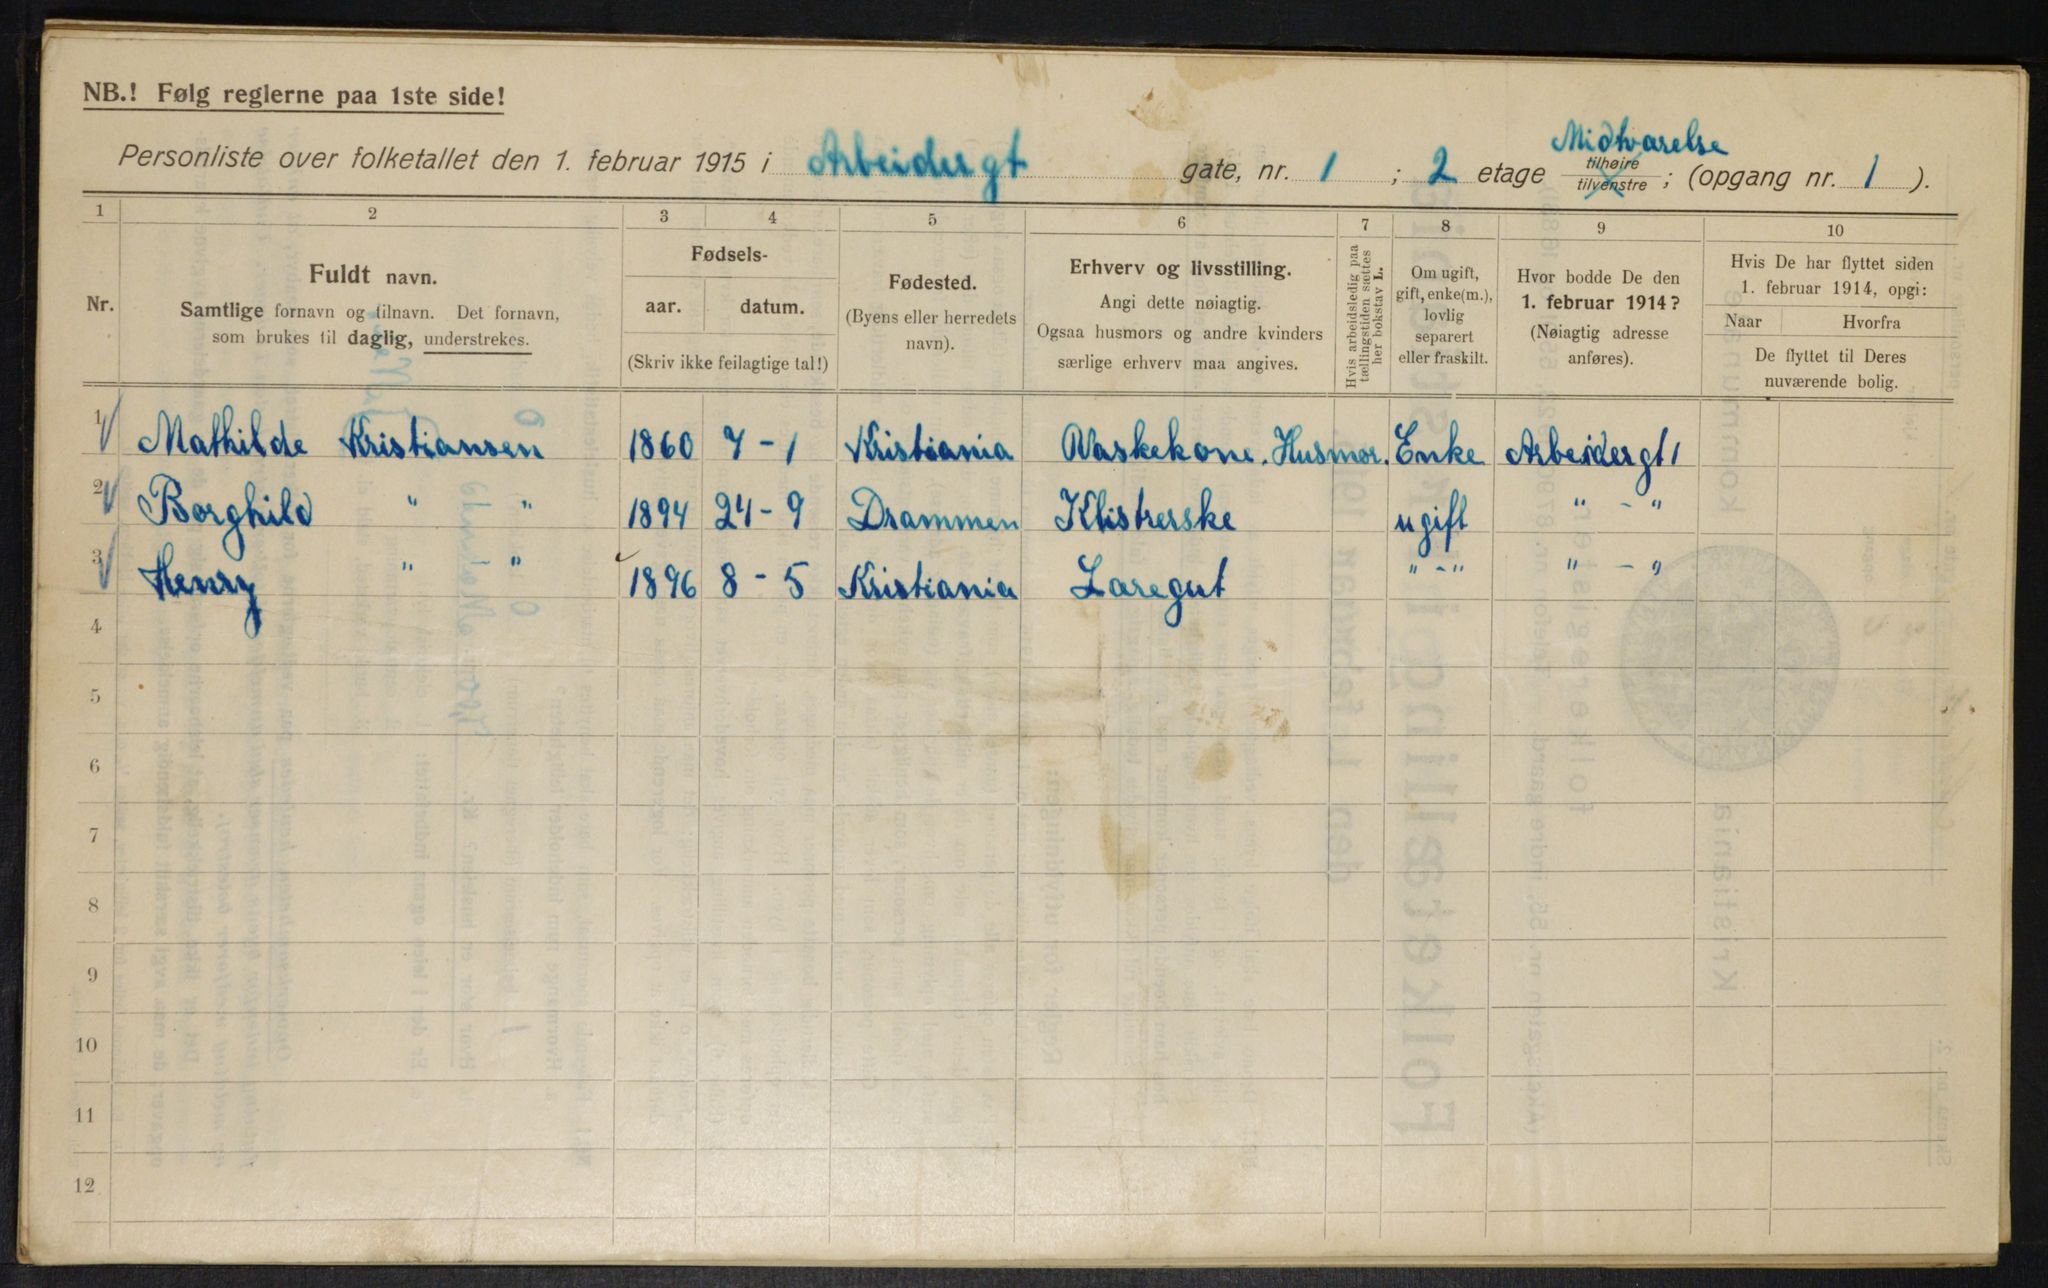 NB.! Følg reglerne paa 1ste side!
Midtvarelse
Personliste over folketallet den 1. februar 1915 i Arbeidergt gate, nr. 1 ; 2 etage tilhøire tilvenstre ; (opgang nr. 1 ).
1 2 3 4 5 6 7 8 9 10
Nr.
Fuldt navn.
Samtlige fornavn og tilnavn. Det fornavn,
som brukes til daglig, understrekes.
Fødsels-
aar. datum.
(Skriv ikke feilagtige tal!)
Fødested.
(Byens eller herredets
navn).
Erhverv og livsstilling.
Angi dette nøiagtig.
Ogsaa husmors og andre kvinders
særlige erhverv maa angives.
Hvis arbeidsledig paa
tællingstiden sættes
her bokstav L.
Om ugift,
gift, enke(m.),
lovlig
separert
eller fraskilt.
Hvor bodde De den
1. februar 1914?
(Nøiagtig adresse
anføres).
Hvis De har flyttet siden
1. februar 1914, opgi:
Naar Hvorfra
De flyttet til Deres
nuværende bolig.
1 Mathilde Kristiansen 1860 7-1 Kristiania Vaskekone. Husmor. Enke Arbeidergt 1
2 Borghild " " 1894 24-9 Drammen Klistrerske ugift " - "
3 Henry " " 1896 8-5 Kristiania Laregut " - " " - "
4
5
6
7
8
9
10
11
12